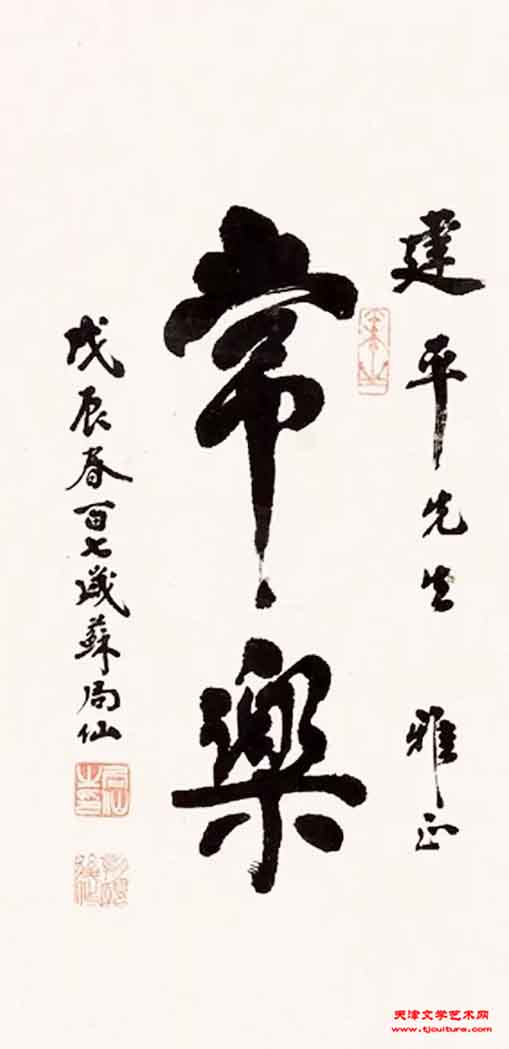 建平先生 雅正
常樂
戊辰春百七歲蘇局仙
天津文学艺术网
www.tjculture.com